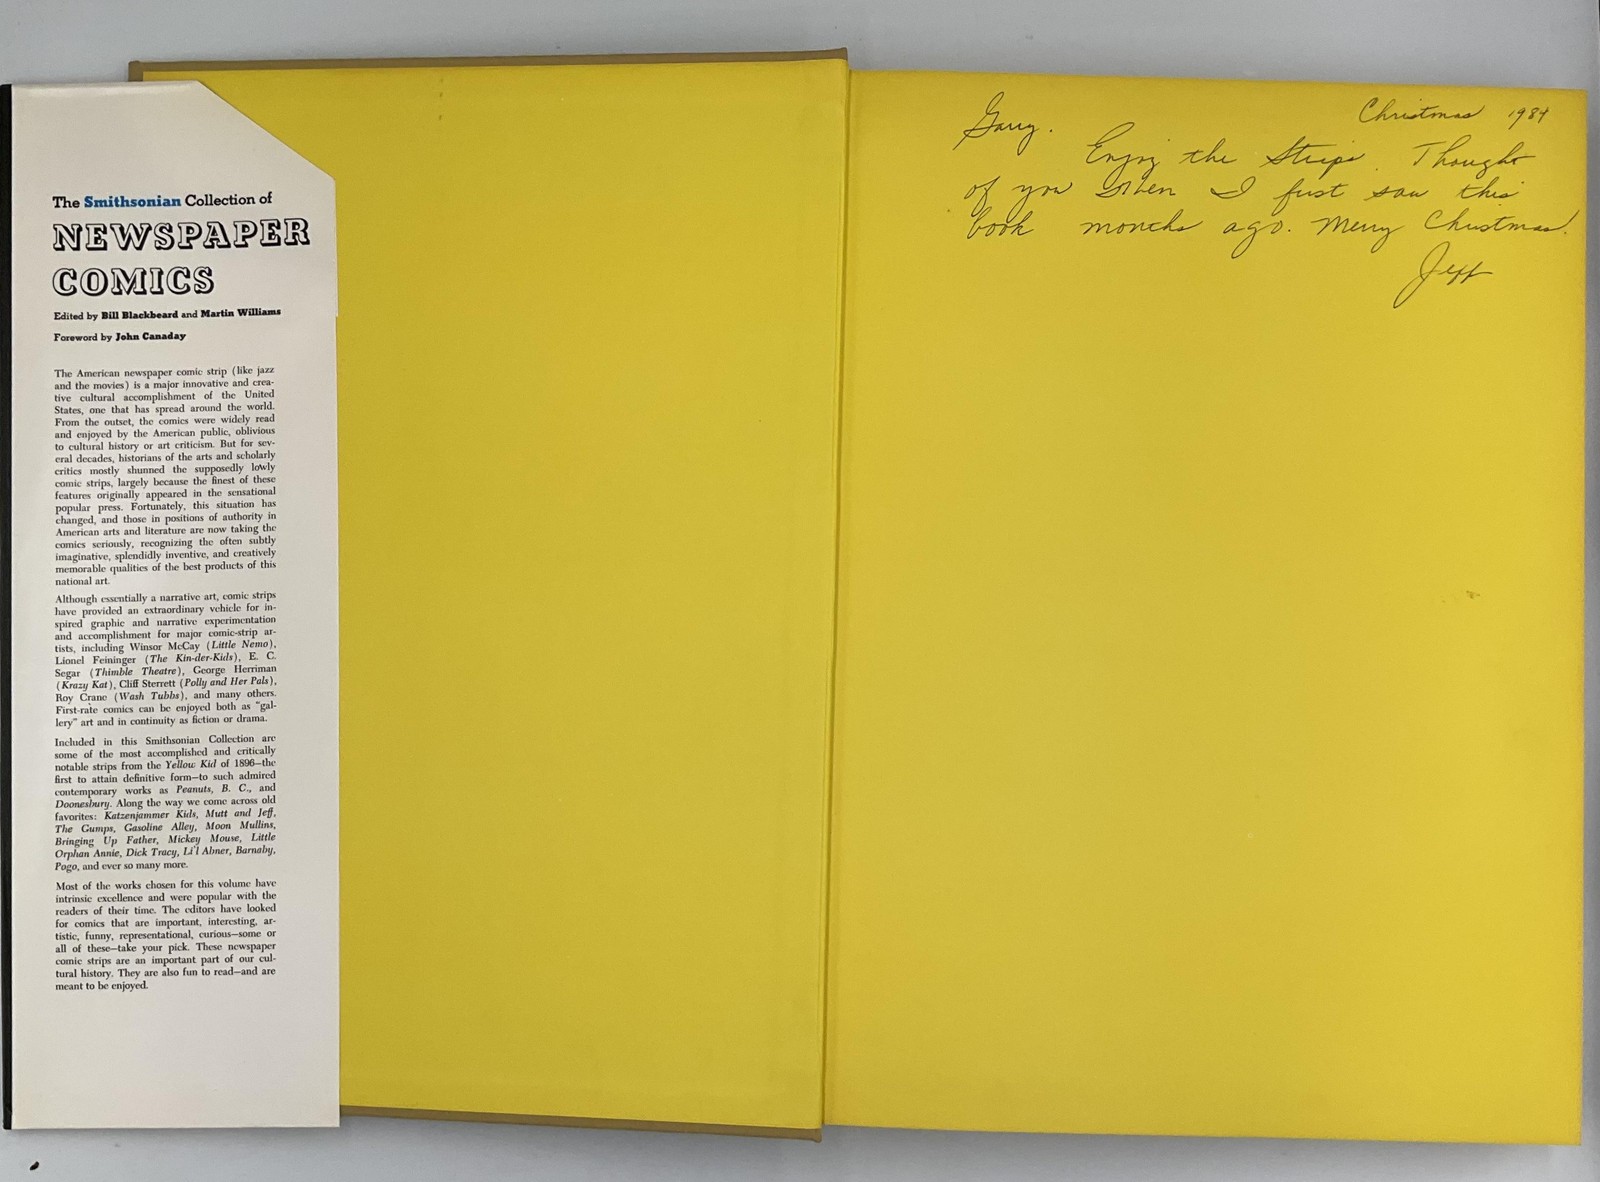 The Smithsonian Collection of
NEWSPAPER
COMICS
Edited by Bill Blackbeard and Martin Williams
Foreword by John Canaday
The American newspaper comic strip (like jazz
and the movies) is a major innovative and crea-
tive cultural accomplishment of the United
States, one that has spread around the world.
From the outset, the comics were widely read
and enjoyed by the American public, oblivious
to cultural history or art criticism. But for sev-
eral decades, historians of the arts and scholarly
critics mostly shunned the supposedly lowly
comic strips, largely because the finest of these
features originally appeared in the sensational
popular press. Fortunately, this situation has
changed, and those in positions of authority in
American arts and literature are now taking the
comics seriously, recognizing the often subtly
imaginative, splendidly inventive, and creatively
memorable qualities of the best products of this
national art.
Although essentially a narrative art, comic strips
have provided an extraordinary vehicle for in-
spired graphic and narrative experimentation
and accomplishment for major comic-strip ar-
tists, including Winsor McCay (Little Nemo),
Lionel Feininger (The Kin-der-Kids), E. C.
Segar (Thimble Theatre), George Herriman
(Krazy Kat), Cliff Sterrett (Polly and Her Pals),
Roy Crane (Wash Tubbs), and many others.
First-rate comics can be enjoyed both as "gal-
lery" art and in continuity as fiction or drama.
Included in this Smithsonian Collection are
some of the most accomplished and critically
notable strips from the Yellow Kid of 1896—the
first to attain definitive form—to such admired
contemporary works as Peanuts, B. C., and
Doonesbury. Along the way we come across old
favorites: Katzenjammer Kids, Mutt and Jeff,
The Gumps, Gasoline Alley, Moon Mullins,
Bringing Up Father, Mickey Mouse, Little
Orphan Annie, Dick Tracy, Li'l Abner, Barnaby,
Pogo, and ever so many more.
Most of the works chosen for this volume have
intrinsic excellence and were popular with the
readers of their time. The editors have looked
for comics that are important, interesting, ar-
tistic, funny, representational, curious—some or
all of these—take your pick. These newspaper
comic strips are an important part of our cul-
tural history. They are also fun to read—and are
meant to be enjoyed.
Christmas 1984
Garry.
Enjoy the Strips. Thought
of you when I first saw this
book months ago. Merry Christmas.
Jeff